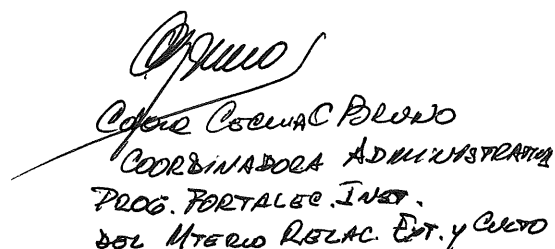 Cecilia C Bruno
COORDINADORA ADMINISTRATIVA
PROG. FORTALEC. INST.
DEL MTERIO RELAC. EXT. y CULTO